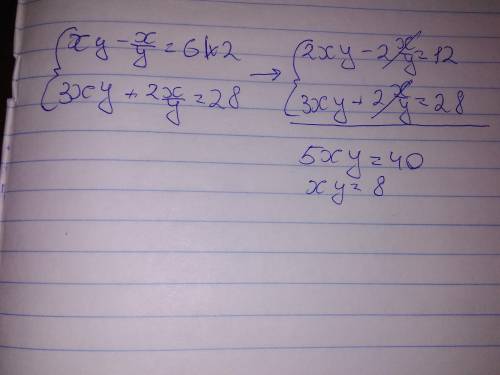 {xy - x/y = 6 |·2 → {2xy - 2x/y = 12
{3xy + 2x/y = 28 {3xy + 2x/y = 28
5xy = 40
xy = 8